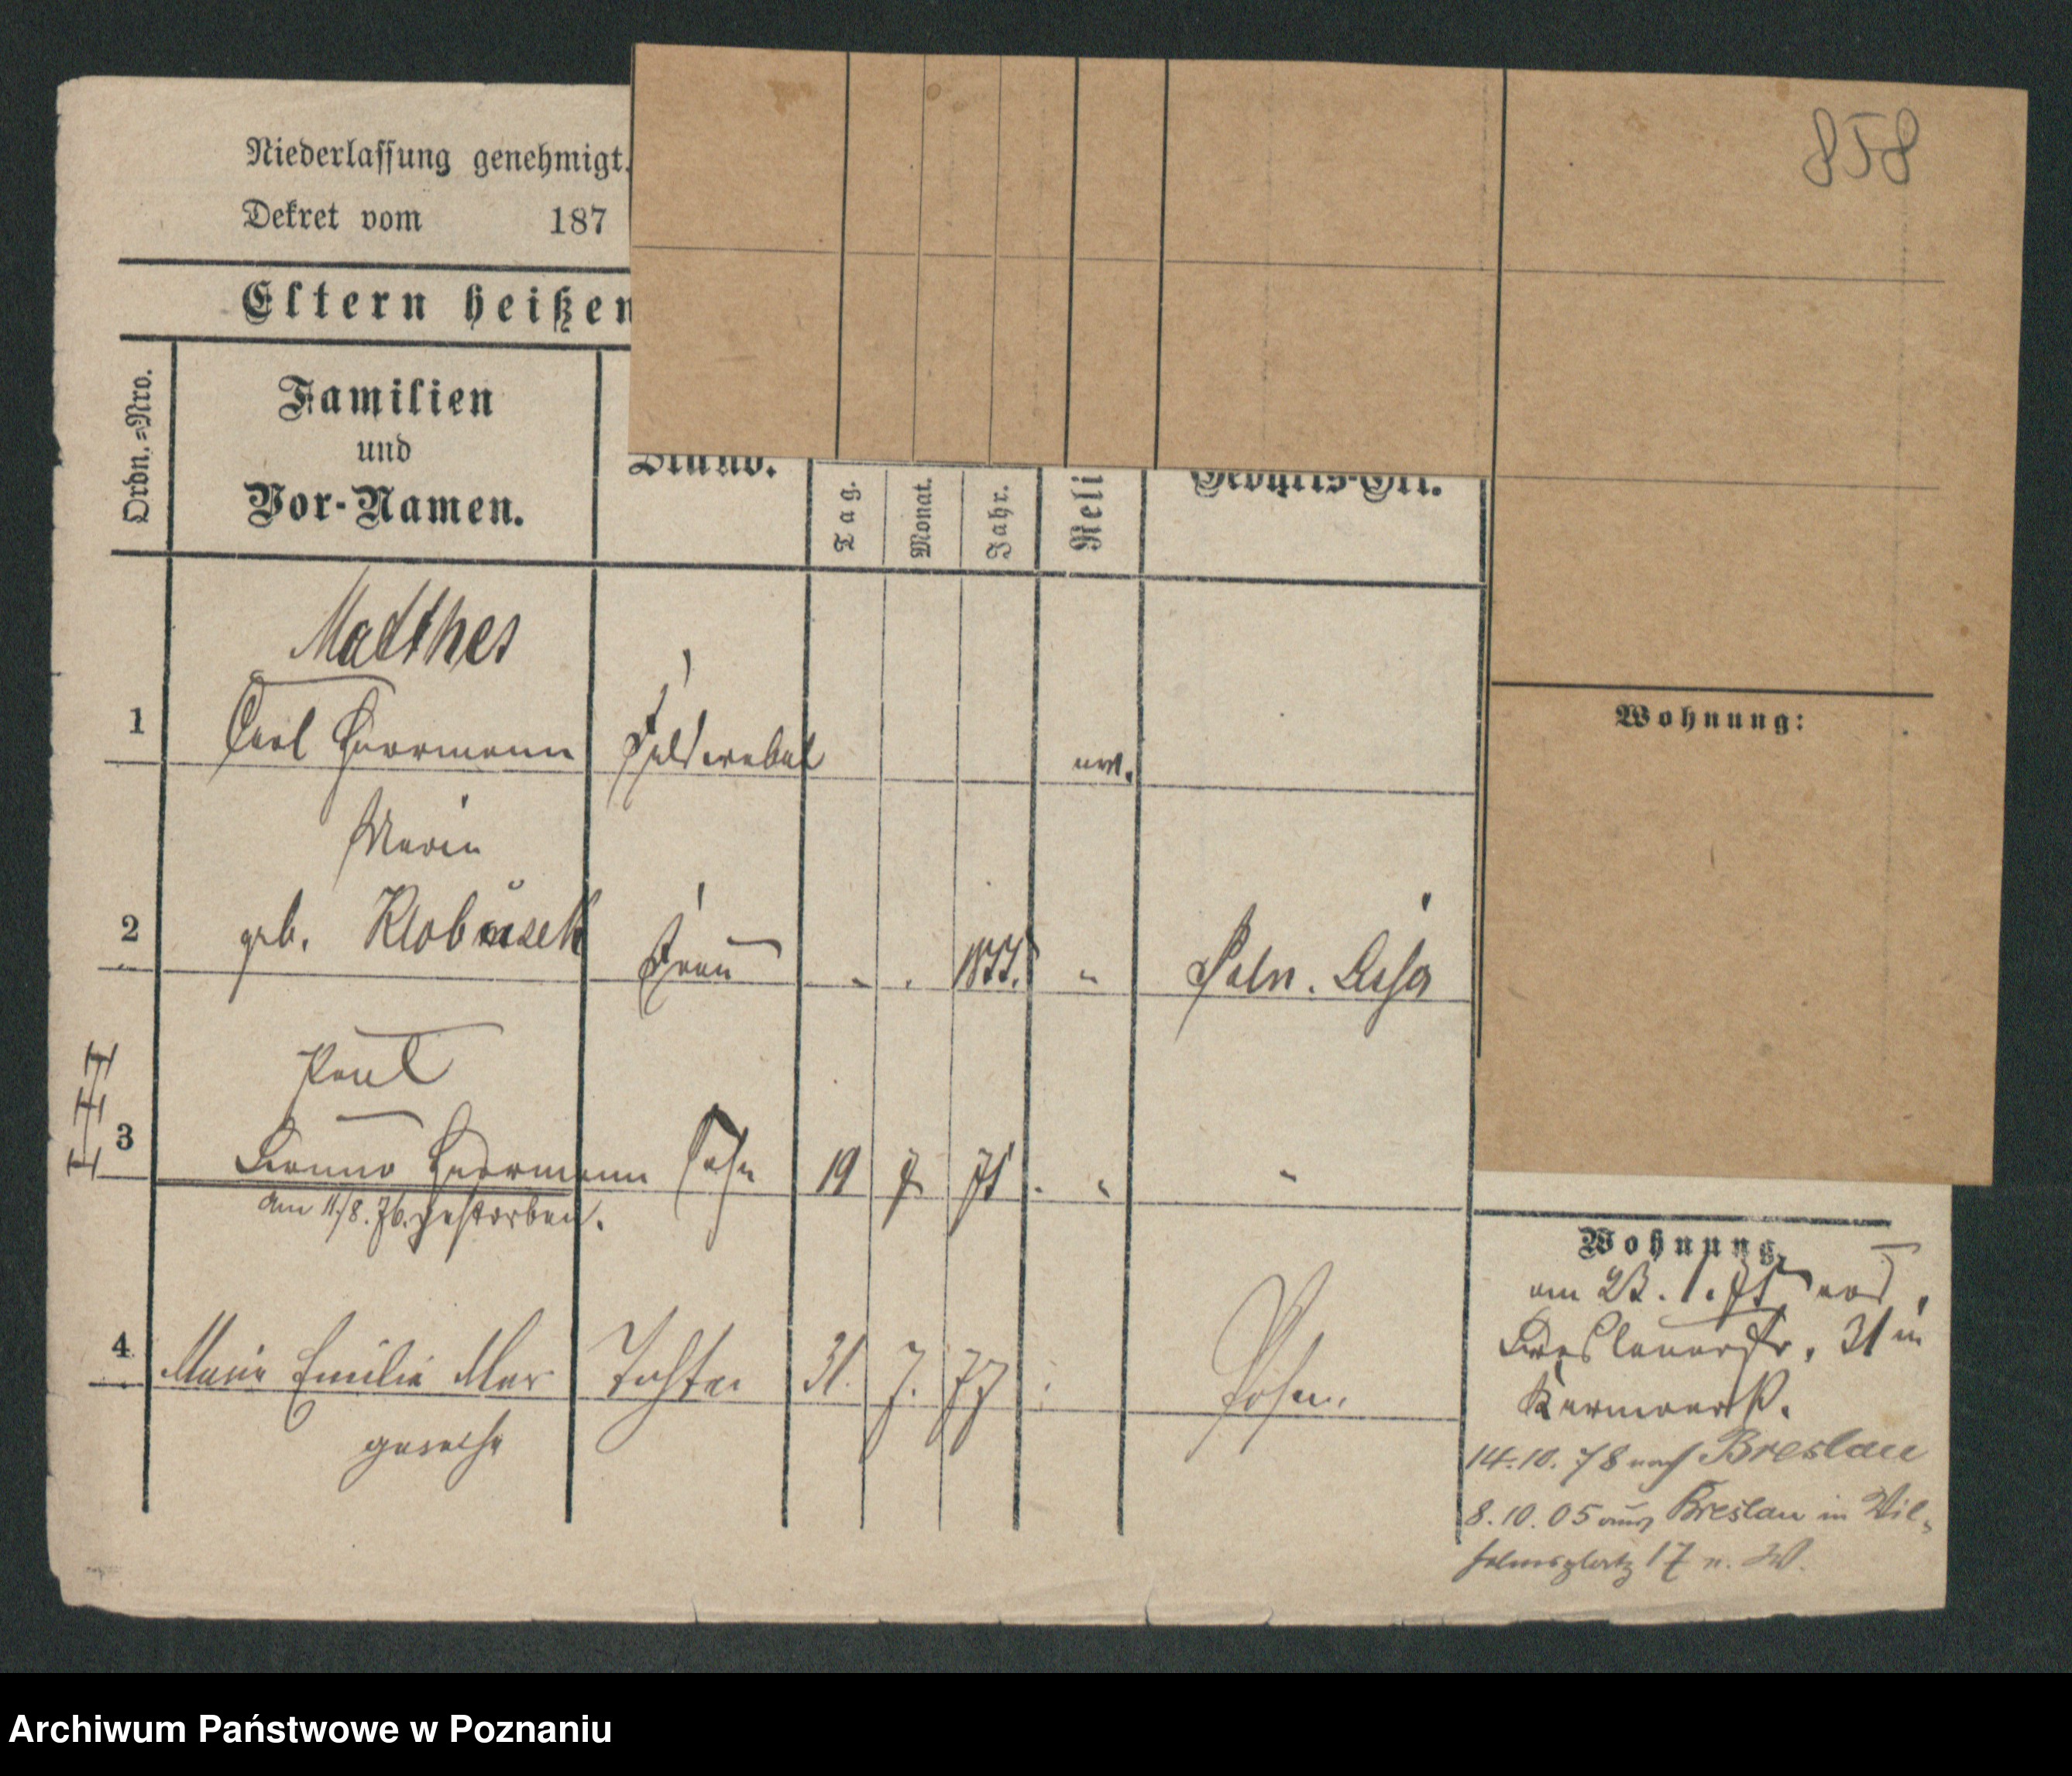 858
Niederlassung genehmigt.
Dekret vom 187
Eltern heißen
Ordn.=Nro.
Familien
und
Vor-Namen.
Stand.
Tag.
Monat.
Jahr.
Reli
Geburts-Ort.
Matthes
1 Carl Herrmann Feldwebel ev.
Marie
2 geb. Klobusek Frau " " 1855. " Poln. Lissa
Paul
3 Bruno Herrmann Sohn 19 7 75 . " "
am 11/8. 76. gestorben.
4 Marie Emilie Mar Tochter 31. 7. 77 Posen.
garethe
Wohnung:
Wohnung
am 23. 1. 75 aus
Breslauerstr. 31 in
14.10.78 nach Breslau
8.10.05 aus Breslau in Wil-
helmsplatz 17 n. W.
Archiwum Państwowe w Poznaniu